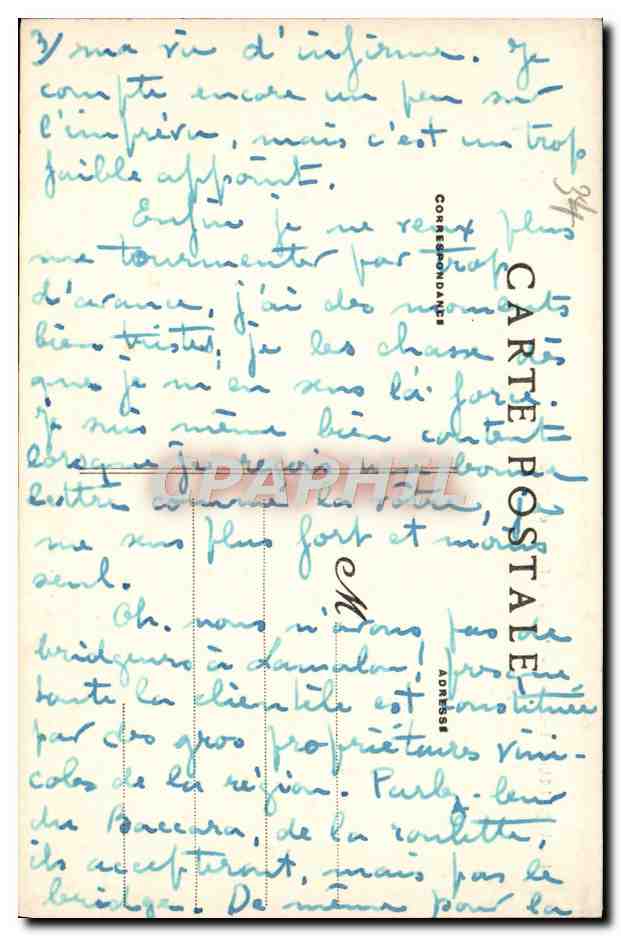 3/ ma vie d'infirme. Je
compte encore un peu sur
l'imprévu, mais c'est un trop
faible appoint.
34
Enfin je ne veux plus
me tourmenter par trop
d'avance, j'ai des moments
bien tristes, je les chasse dès
que je m'en sens la force.
Je suis même bien content
lorsque je reçois une bonne
lettre comme la vôtre, je
me sens plus fort et moins
seul.
Oh. nous n'avons pas de
bridgeurs à Lamalou, presque
toute la clientèle est constituée
par des gros propriétaires vini-
coles de la région. Parlez-leur
du Baccara, de la roulette,
ils accepteront, mais pas le
bridge. De même pour la
CARTE POSTALE
CORRESPONDANCE
ADRESSE
M
CPAPHIL